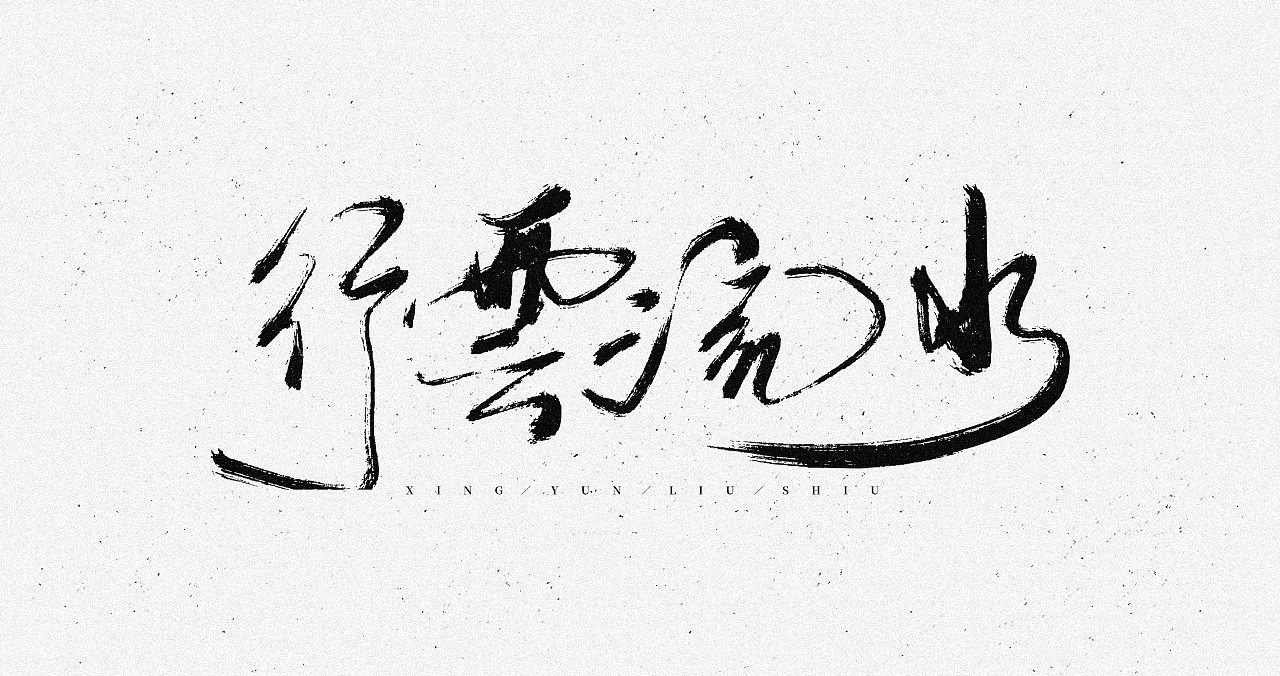 行雲流水
XING/YUN/LIU/SHIU